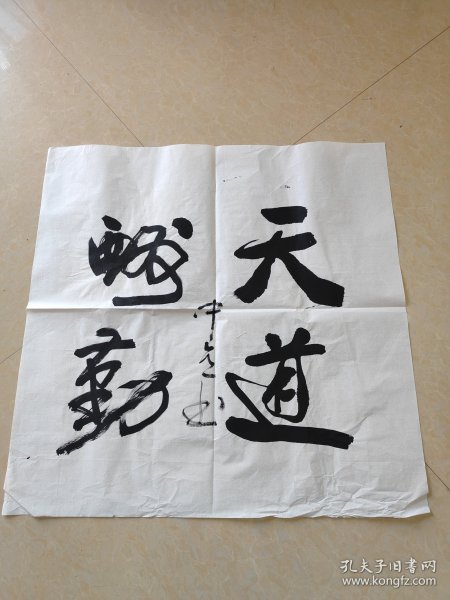 天道
酬勤
中
书
孔夫子旧书网
www.kongfz.com